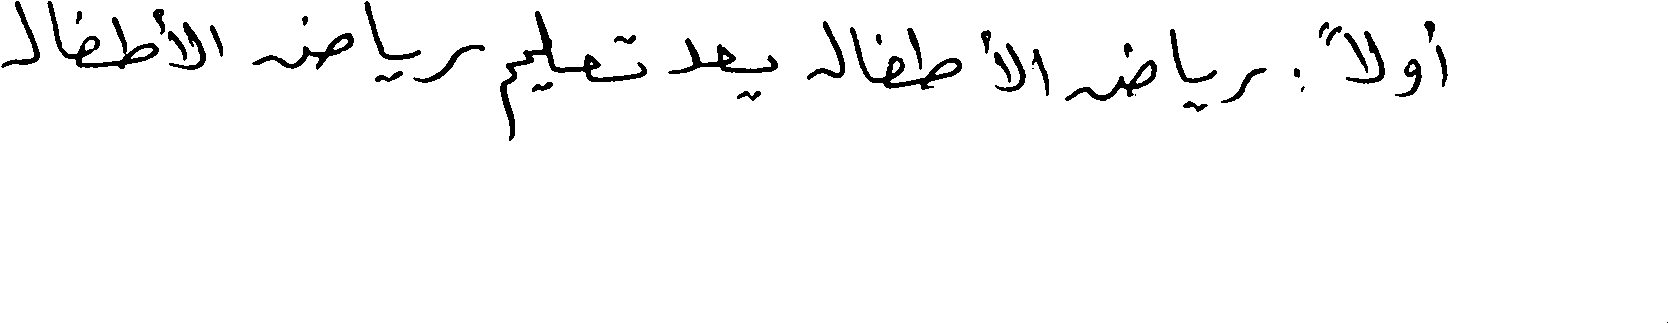 أولاً : رياض الأطفال يعد تعليم رياض الأطفال